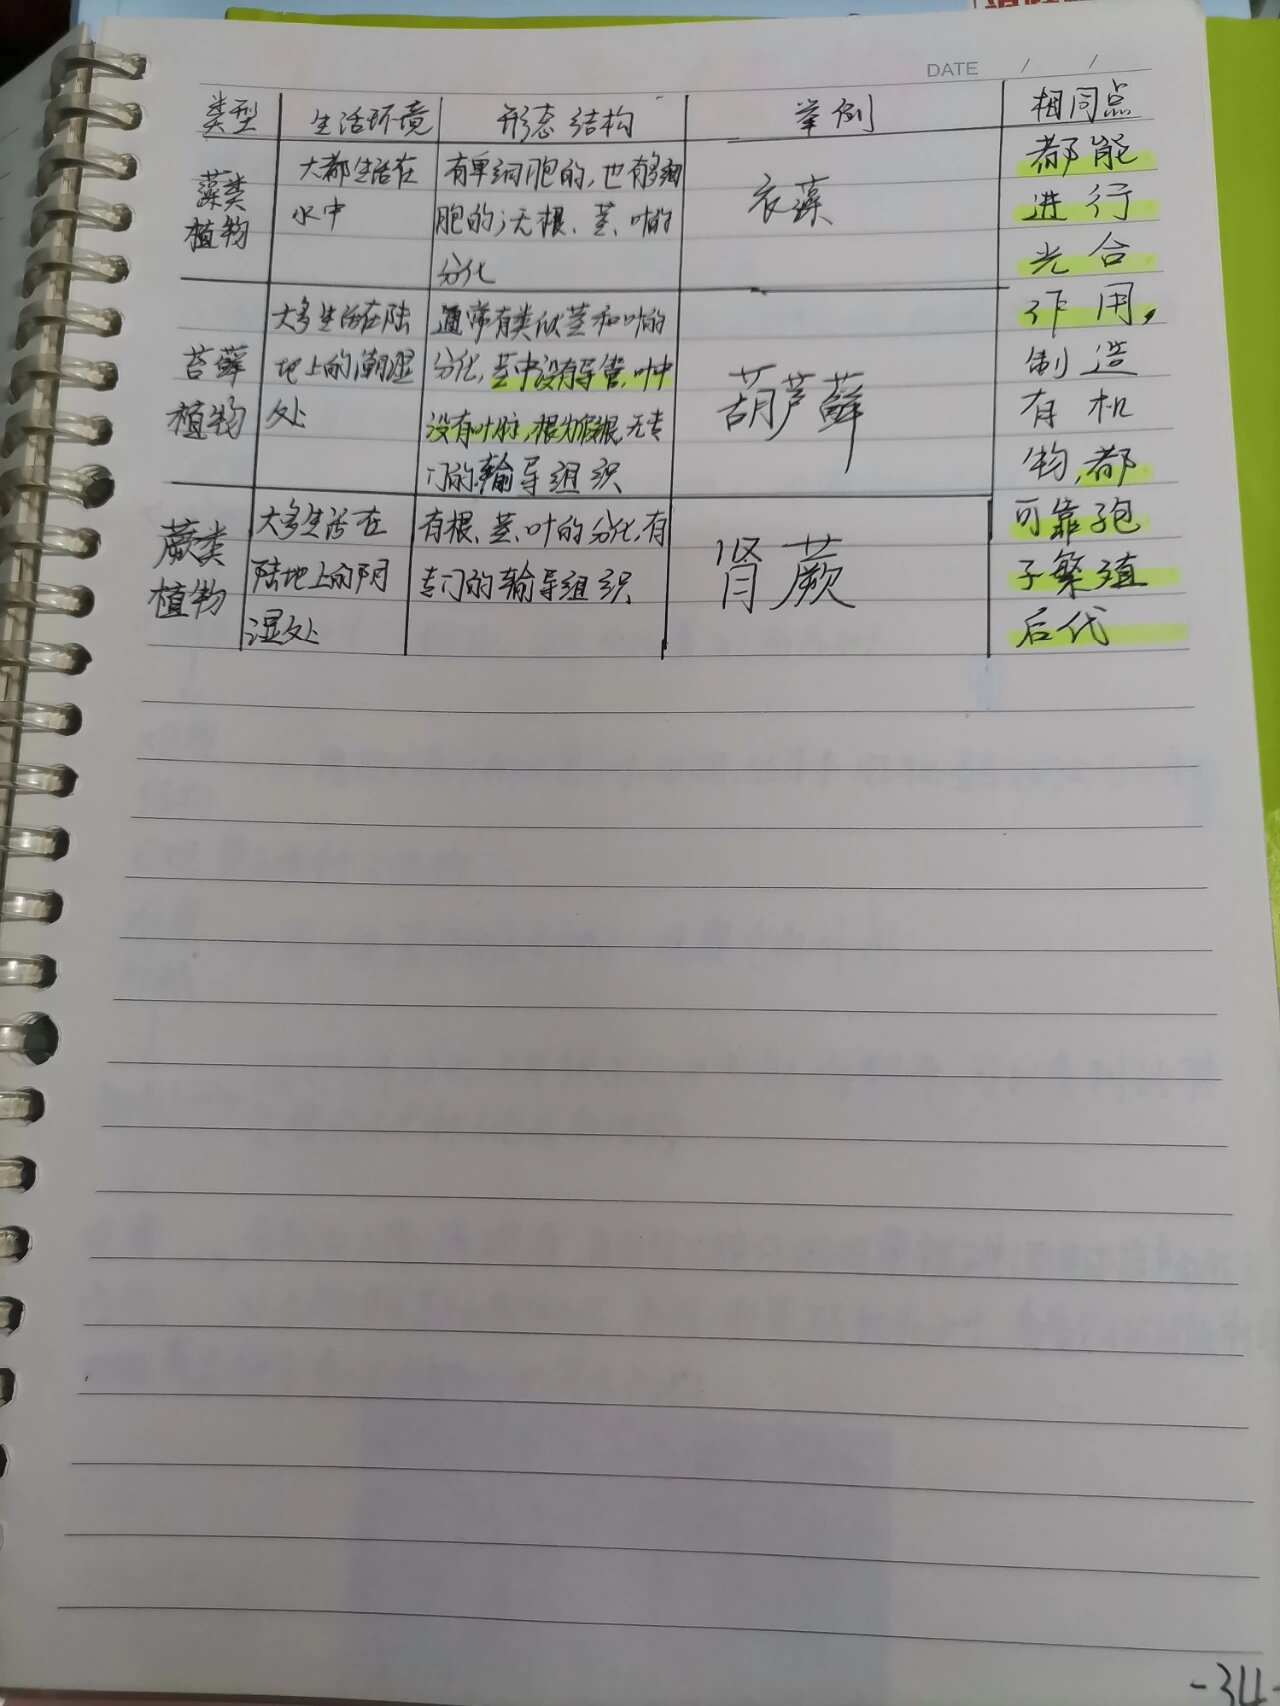 DATE / /
类型 生活环境 形态结构 举例 相同点
藻类
植物
大都生活在
水中
有单细胞的,也有多细
胞的;无根、茎、叶的
分化
衣藻
苔藓
植物
大多生活在陆
地上的潮湿
处
通常有类似茎和叶的
分化,茎中没有导管,叶中
没有叶脉,根为假根,无专
门的输导组织
葫芦藓
蕨类
植物
大多生活在
陆地上的阴
湿处
有根、茎、叶的分化,有
专门的输导组织
肾蕨
都能
进行
光合
作用,
制造
有机
物,都
可靠孢
子繁殖
后代
-34-